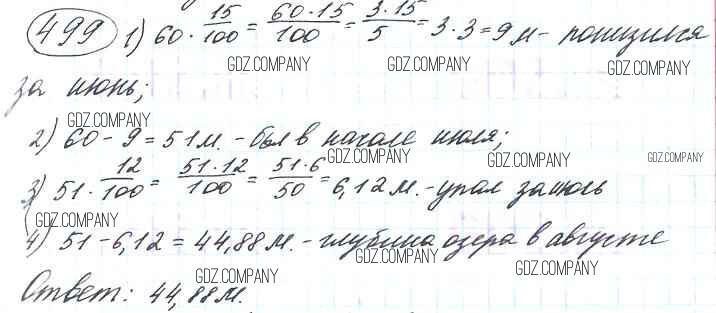 499 1) 60 · 15/100 = 60·15/100 = 3·15/5 = 3·3 = 9 м - понизился
GDZ.COMPANY GDZ.COMPANY GDZ.COMPANY
за июнь;
GDZ.COMPANY
2) 60 - 9 = 51 м. - был в начале июля;
GDZ.COMPANY GDZ.COMPANY GDZ.COMPANY
3) 51 · 12/100 = 51·12/100 = 51·6/50 = 6,12 м. - упал за июль
GDZ.COMPANY
4) 51 - 6,12 = 44,88 м. - глубина озера в августе
GDZ.COMPANY GDZ.COMPANY GDZ.COMPANY
Ответ: 44,88 м.